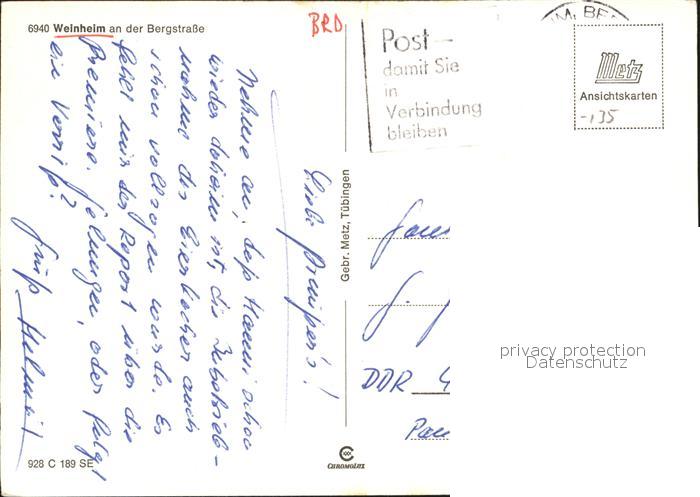 6940 Weinheim an der Bergstraße
BRD
Post –
damit Sie
in
Verbindung
bleiben
Metz
Ansichtskarten
-,35
Liebe
Nehme an, daß Hanni schon
wieder daheim ist, die Inbetrieb-
nahme des Eierkocher auch
schon vollzogen wurde. Es
fehlt mir der Report über die
Premiere. Gelungen, oder folgt
ein Verriß?
Gruß Helmut
Gebr. Metz, Tübingen
DDR
privacy protection
Datenschutz
928 C 189 SE
CHROMOLUX